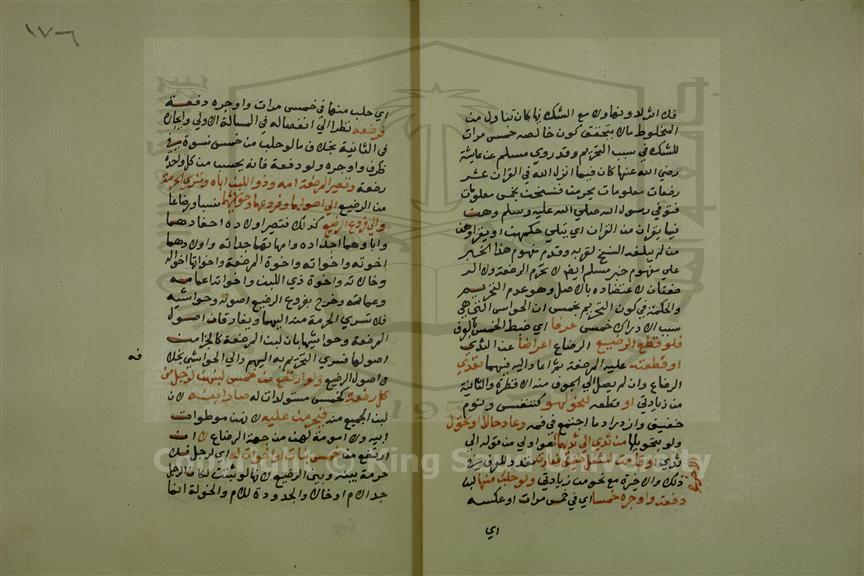 ١٧٦
فلا اثر لا ونهاوك مع الشك فيها كان تناول من
المخلوط ما لا يتحقق كون خالصه خمس مرات
للشك في سبب التحريم وقد روى مسلم عن عايشة
رضي الله عنها كان فيما انزل الله في القران عشر
رضعات معلومات يحرمن فنسخت بخمس معلومات
فتوفي رسول الله صلى الله عليه وسلم وهن
فيما يقران من القران اي يتلى حكمهن او يقراوهن
من لم يبلغه النسخ لقربه وقدم مفهوم هذا الخبر
على مفهوم خبر مسلم ايضا لا تحرم الرضعة ولا الر
ضعتان لاعتضاده بالاصل وهو عدم التحريم
والحكمة في كون التحريم بخمس ان الحواس التي هي
سبب الادراك خمس عرفا اي ضبط الخمس بالعرف
فلو قطع الرضيع الرضاع اعراضا عن الثدي
او قطعته عليه المرضعة ثم عاد اليه فيهما تعدد
الرضاع وان لم يصل الى الجوف منه الا قطرة والثانية
من زيادتي او قطعه للهو كتنفس ونوم
خفيف وازدراد ما اجتمع في فمه وعاد حالا او تحول
ولو بتحويلها من ثدي الى ثديها
ثدي او قامت لشغل خفيف فعادت فلا
ذلك والاخيرة مع نحو من زيادتي ولو حلب منها لبن
دفعة واوجره خمسا اي في خمس مرات او عكسه
اي
اي حلب منها في خمس مرات واوجره دفعة
فرضعة نظرا الى انفصاله في المسالة الاولى وايجاره
في الثانية بخلاف ما لو حلب من خمس نسوة في
ظرف واوجره ولو دفعة فانه يحسب من كل واحدة
رضعة وتصير المرضعة امه وذو اللبن اباه وتسري الحرمة
من الرضيع الى اصولهما وفروعهما وحواشيهما نسبا ورضاعا
والى فروع الرضيع كذلك فتصير اولاده احفادهما
واباوهما اجداده وامهاتهما جداته واولادهما
اخوته واخواته واخوة المرضعة واخواتها اخواله
وخالاته واخوة ذي اللبن واخواته اعمامه
وعماته وخرج بفروع الرضيع اصوله وحواشيه
فلا تسري الحرمة منه اليهما ويفارقان اصول
المرضعة وحواشيها بان لبن المرضعة كالجزء من
اصولها فسرى التحريم به اليهم والى الحواشي بخلا
ف اصول الرضيع ولو ارتضع من خمس لبنهن لرجل من
كل رضعة كخمس مستولدات له صار ابنه لان
لبن الجميع منه فيحرمن عليه لانهن موطوات
ابيه ولا امومة لهن من جهة الرضاع لا ان
ارتضع من خمس بنات او اخوات له اي لرجل فلا
حرمة بينه وبين الرضيع لانها لو ثبتت لكان الرجل
جدا لام او خالا والجدودة للام والخولة انما